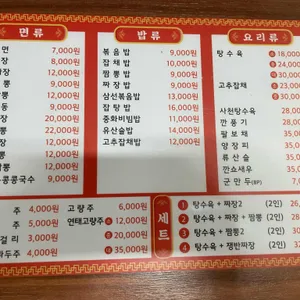 면류
면 7,000원
장 8,000원
장 12,000원
뽕 9,000원
뽕 12,000원
동 9,000원
장 20,000원
뽕 22,000원
장 12,000원
뽕 12,000원
뽕 12,000원
콩국수 9,000원
밥류
볶음밥 9,000원
잡채밥 10,000원
짬뽕밥 9,000원
짜장밥 9,000원
삼선볶음밥 3,000원
잡탕밥 16,000원
중화비빔밥 11,000원
유산슬밥 14,000원
고추잡채밥 12,000원
요리류
탕수육 18,000
24,000
30,000
고추잡채 23,000
30,000
사천탕수육 28,000
깐풍기
팔보채
양장피
류산슬
깐쇼새우
군만두(8P)
주 4,000원
주 5,000원
걸리 3,000원
과두주 4,000원
고량주 6,000원
연태고량주 소 12,000원
중 20,000원
대 35,000원
세트
1 탕수육 + 짜장2 (2인) 26,
2 탕수육 + 짜장 + 짬뽕 (2인) 28
3 탕수육 + 짬뽕2 (2인) 30
4 탕수육 + 쟁반짜장 (2인) 32